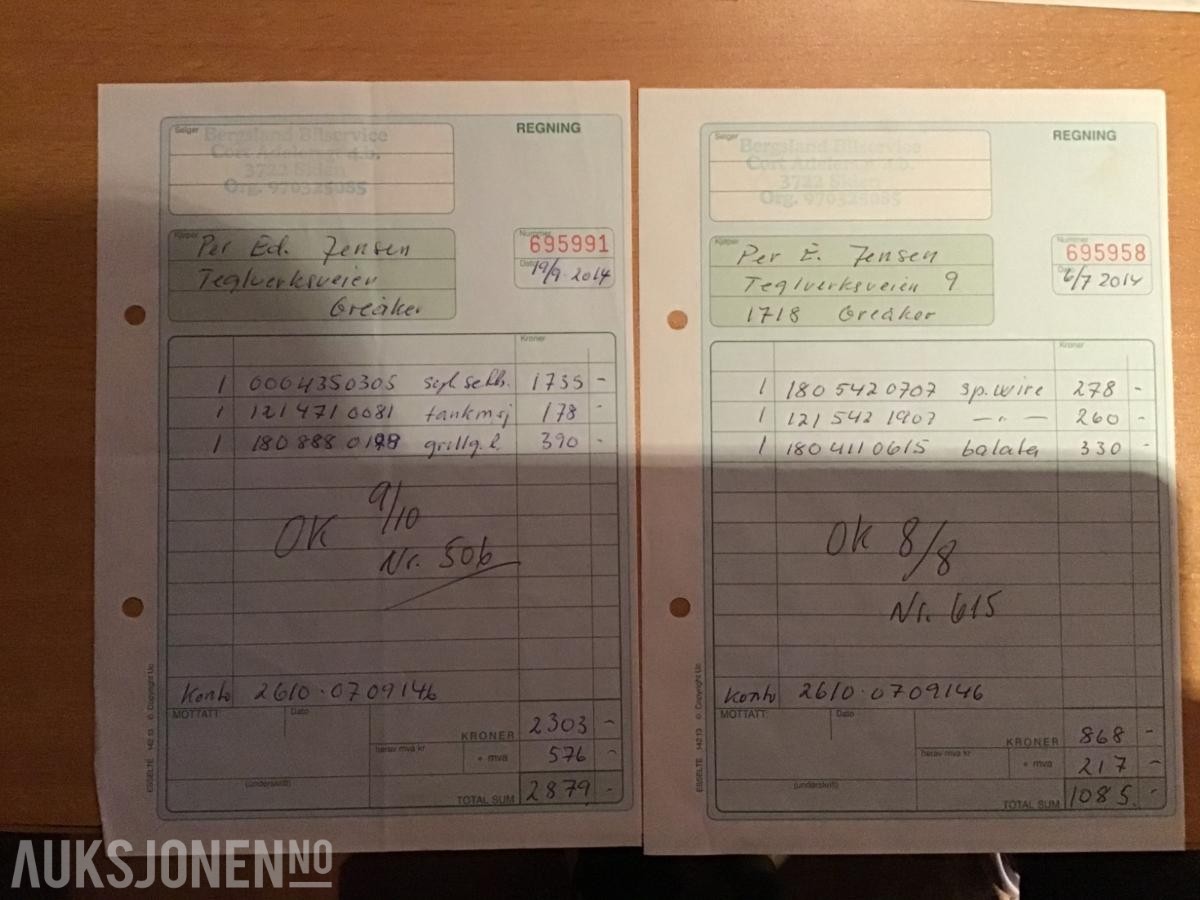 Selger
Bergsland Bilservice
Cort Adelersg d.b.
3722 Skien
Org. 970325085
REGNING
Kjøper
Per Ed. Jensen
Teglverksveien
Greåker
Nummer
695991
Dato
19/9-2014
Kroner
1 0004350305 1735 -
1 121 471 0081 tankmsj 178 -
1 180 888 grillg.l. 390 -
OK 9/10
Nr. 506
Konto 2610.0709146
MOTTATT:
Dato
KRONER 2303 -
herav mva kr
+ mva 576 -
(underskrift)
TOTAL SUM 2879 -
ESSELTE 142 13 © Copyright Uc
Selger
Bergsland Bilservice
Cort Adelersg d.b.
3722 Skien
Org. 970325085
REGNING
Kjøper
Per E. Jensen
Teglverksveien 9
1718 Greåker
Nummer
695958
6/7 2014
Kroner
1 180 542 0707 sp.wire 278 -
1 121 542 1907 — " — 260 -
1 180 411 0615 balata 330 -
OK 8/8
Nr. 615
Konto 2610.0709146
MOTTATT:
Dato
KRONER 868 -
herav mva kr
+ mva 217 -
(underskrift)
TOTAL SUM 1085. -
ESSELTE 142 13 © Copyright Uc
AUKSJONEN.NO